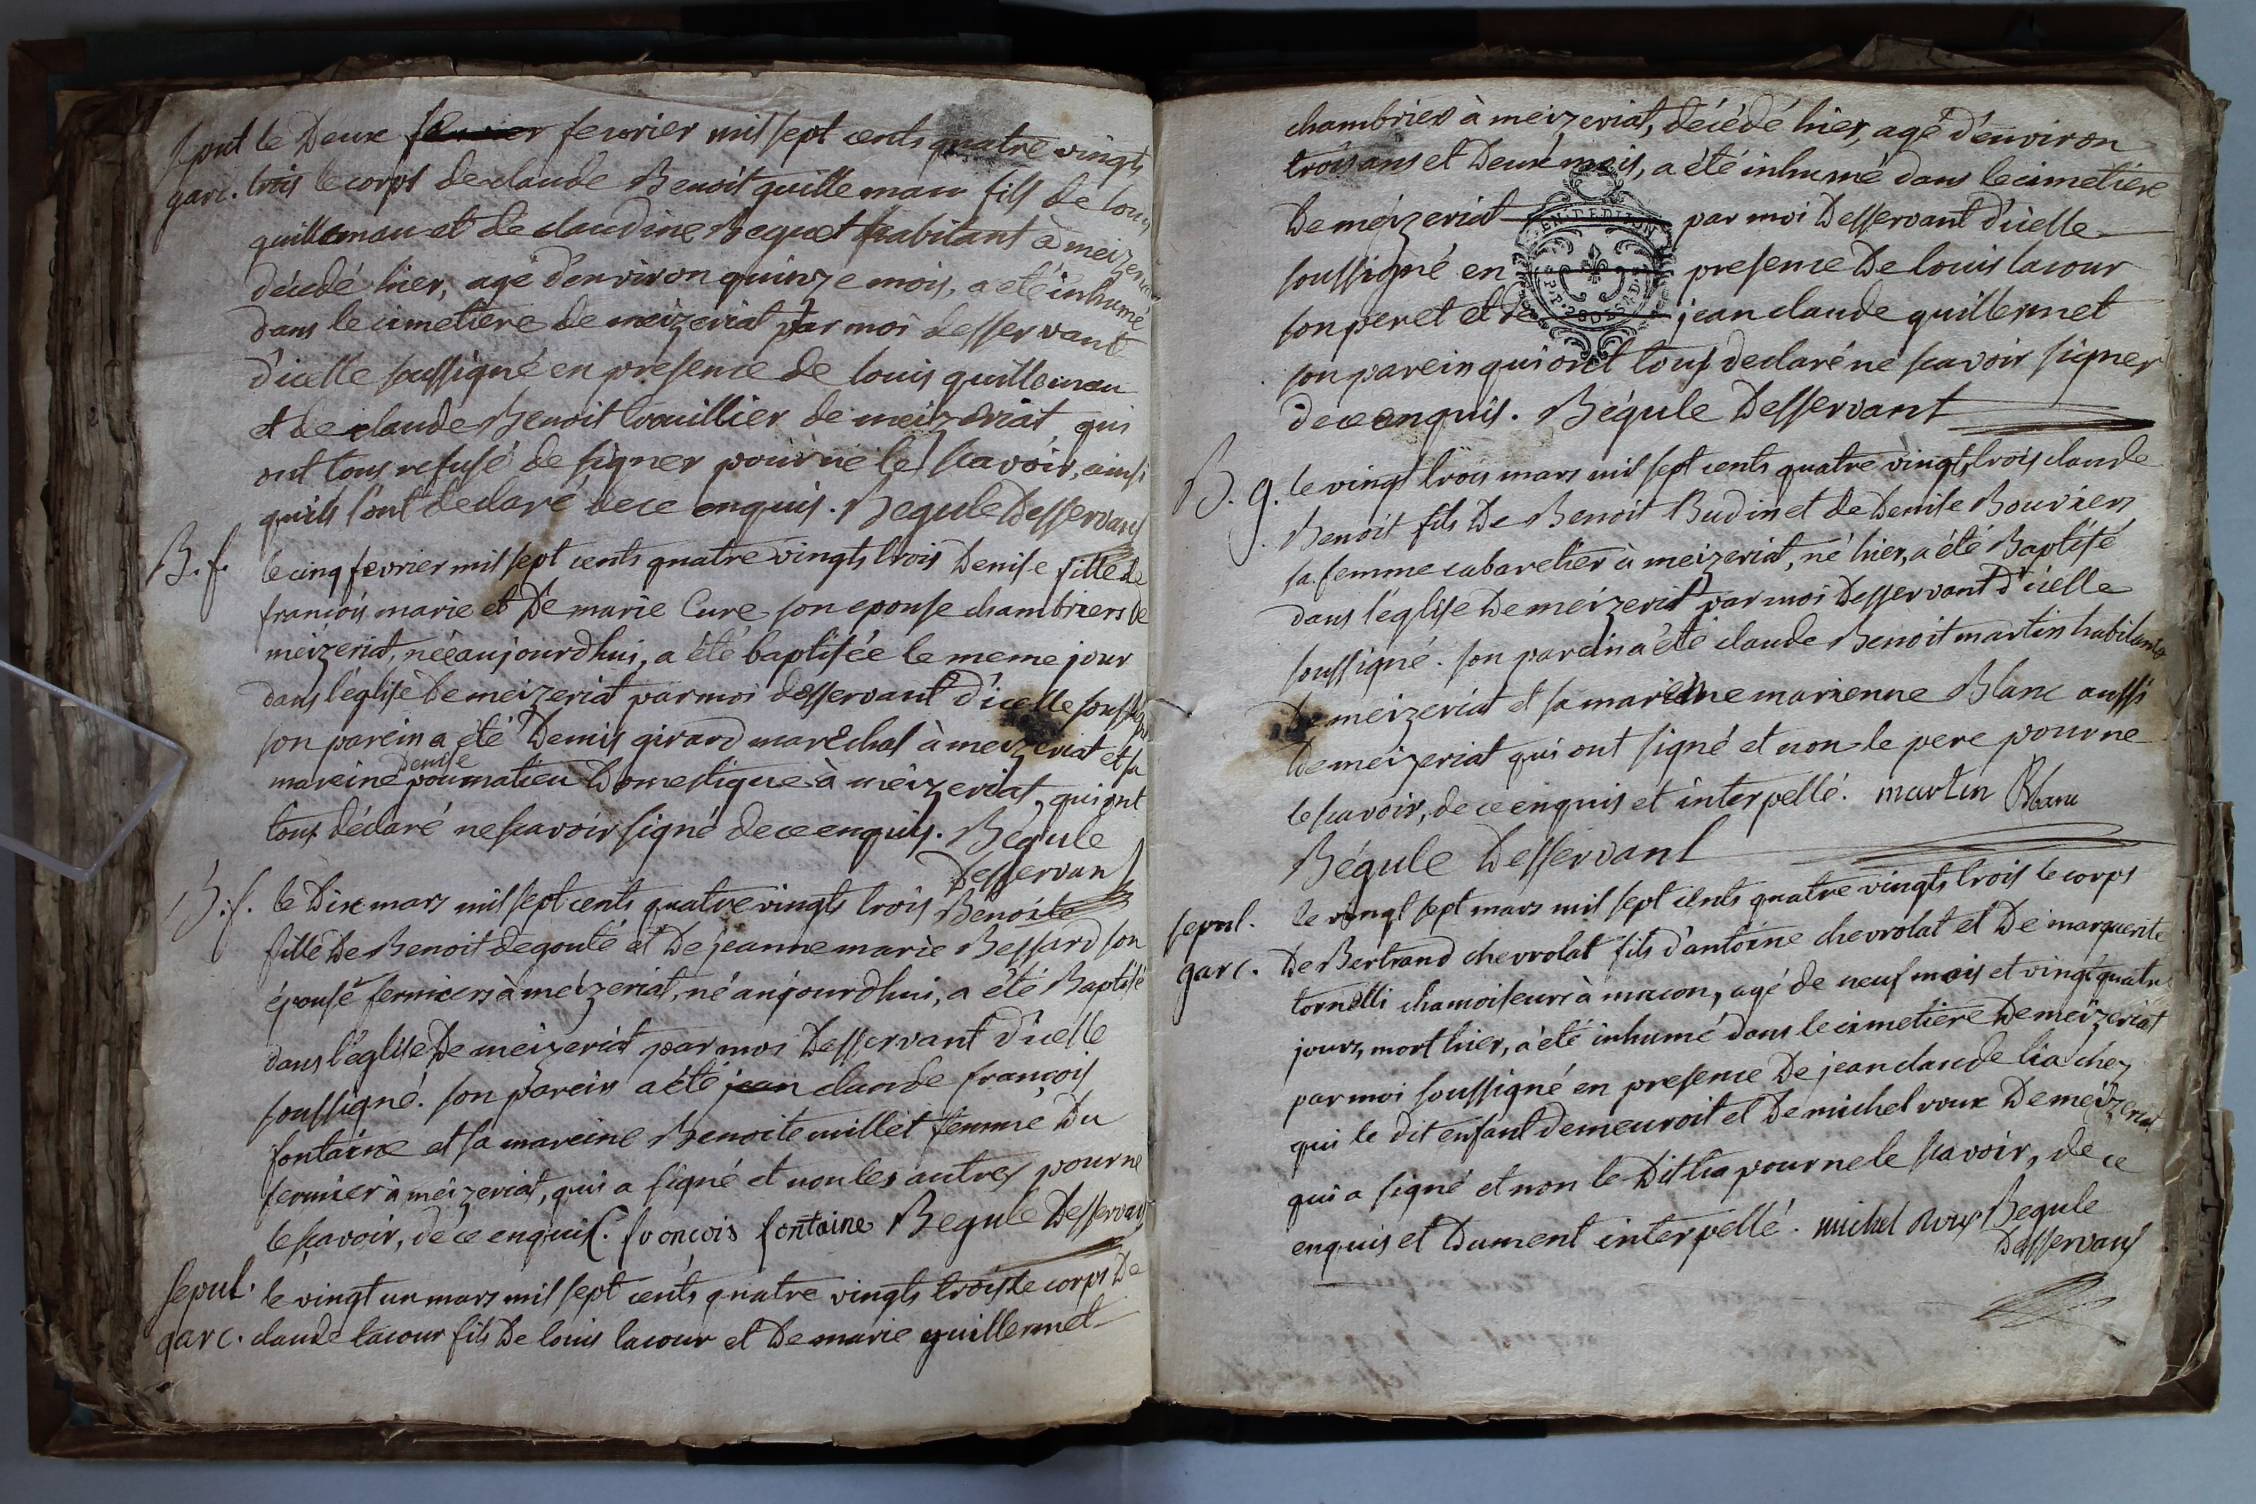 Spul le Deux fevrier mil sept cents quatre vingts
garc. trois le corps de claude Benoit guilleman fils de louis
guilleman et de claudine Bequet habitant à meizeriat
décédé hier, agé d'environ quinze mois, a été inhumé
dans le cimetiere de meizeriat par moi desservant
d'icelle soussigné en presence de louis guilleman
et de claude Benoit trouillier de meizeriat qui
ont tous refusé de signer pour ne le scavoir, ainsi
quils l'ont declaré de ce enquis. Begule Desservant
B. f. le cinq fevrier mil sept cents quatre vingts trois Denise fille de
francois marie et De marie Cure son epouse chambriers de
meizeriat, née aujourdhui, a été baptisée le meme jour
dans l'église De meizeriat par moi desservant d'icelle soussigné
son parein a été Denis girard maréchal à meizeriat et sa
Denise
mareine poumatieu Domestique à meizeriat, qui ont
tous déclaré ne scavoir signé de ce enquis. Bégule
Desservant
B. f. le Dix mars mil sept cents quatre vingts trois Benoite
fille De Benoit degouté et De jeanne marie Bessard son
épouse fermiers à meizeriat, né aujourdhui, a été Baptisé
dans l'église De meizeriat par moi Desservant d'icelle
soussigné. son parein a été jean claude françois
fontaine et sa mareine Benoite millet femme Du
fermier à meizeriat, qui a signé et non les autres pour ne
le scavoir, de ce enquis. francois fontaine Begule Desservant
sepul. le vingt un mars mil sept cents quatre vingts trois le corps De
garc. claude lacour fils De louis lacour et De marie guillermet
chambrier à meizeriat, décédé hier, agé d'environ
trois ans et Deux mois, a été inhumé dans le cimetiere
De meizeriat par moi Desservant d'icelle
GEN. DE DIJON
soussigné en presence De louis lacour
son peret et de jean claude guillermet
son parein qui ont tous declaré ne scavoir signer
de ce enquis. Bégule Desservant
B. g. le vingt trois mars mil sept cents quatre vingts trois claude
Benoit fils De Benoit Budin et de Denise Bouvier
sa femme cabaretier à meizeriat, né hier, a été Baptisé
dans l'église De meizeriat par moi Desservant d'icelle
soussigné. son parein a été claude Benoit martin habitant
De meizeriat et sa mareine marienne Blanc aussi
De meizeriat qui ont signé et non le pere pour ne
le scavoir, de ce enquis et interpellé. martin Blanc
Bégule Desservant
sepul. le vingt sept mars mil sept cents quatre vingts trois le corps
garc. De Bertrand chevrolat fils d'antoine chevrolat et De marguerite
tornelli chamoiseurs à macon, agé de neuf mois et vingt quatre
jours, mort hier, a été inhumé dans le cimetiere De meizeriat
par moi soussigné en presence De jean claude lia chez
qui le dit enfant demeuroit et De michel roux De meizeriat
qui a signé et non le Dit lia pour ne le scavoir, de ce
enquis et Dument interpellé. michel Roux Begule
Desservant